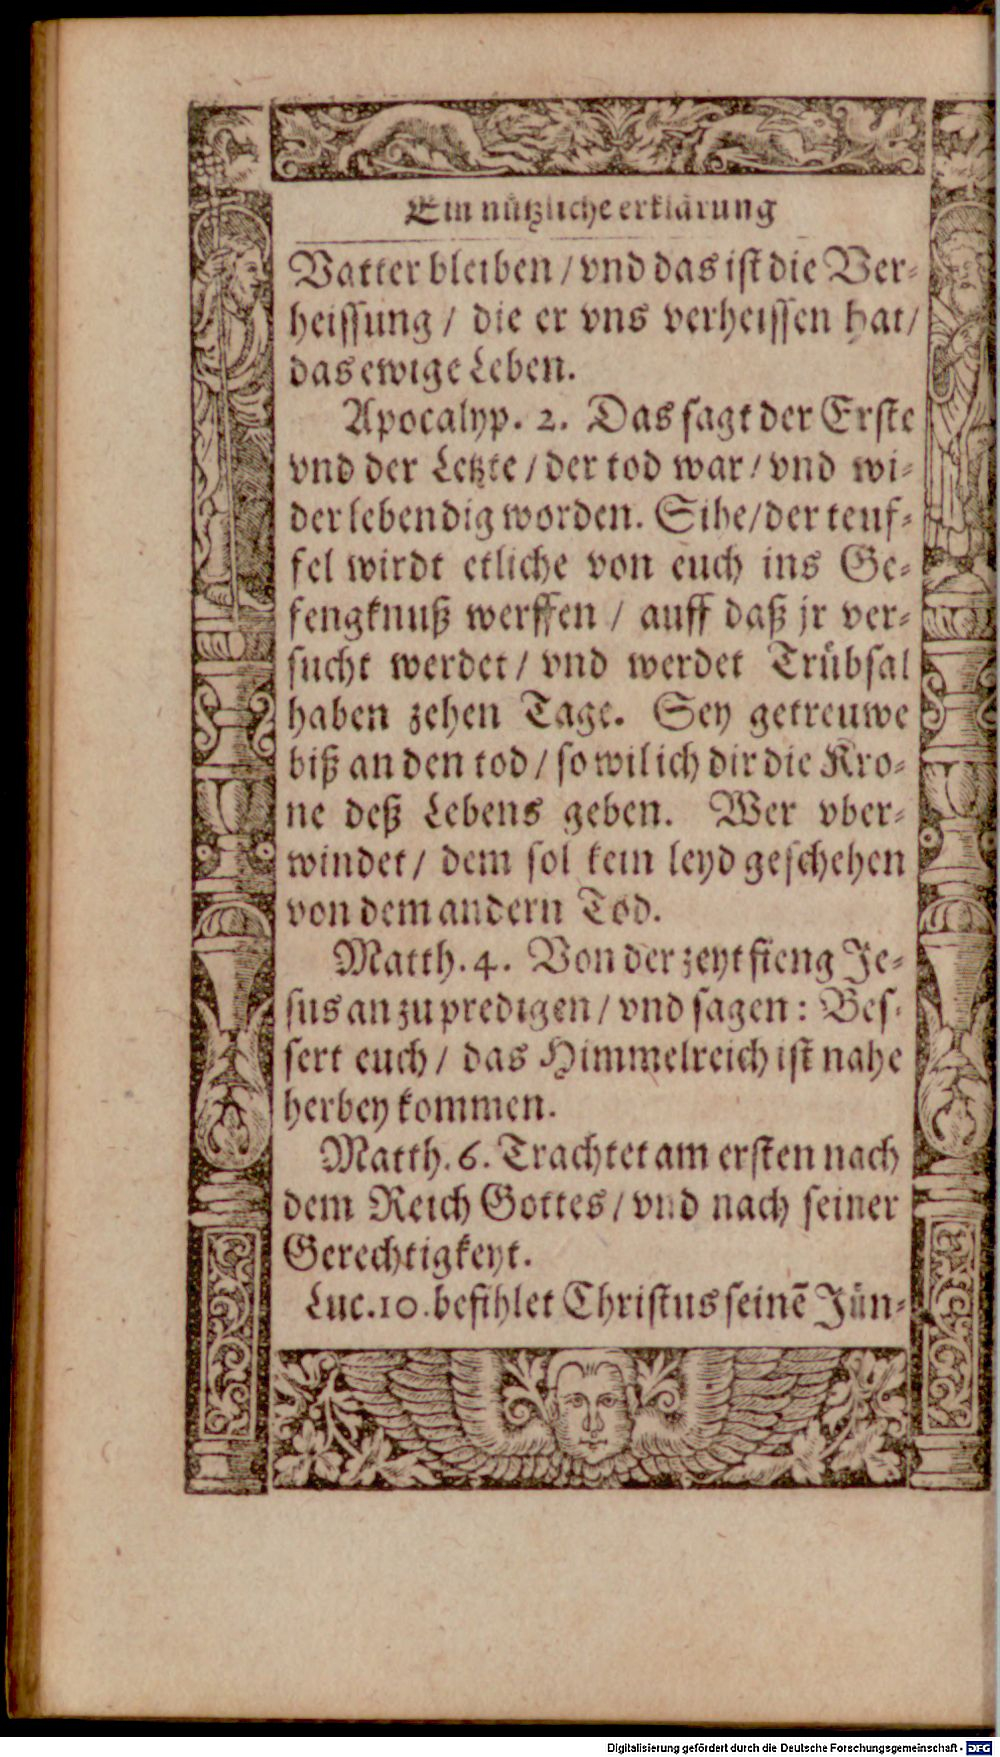 Ein nützliche erklärung
Vatter bleiben / vnd das ist die Ver-
heissung / die er vns verheissen hat /
das ewige Leben.
Apocalyp. 2. Das sagt der Erste
vnd der Letzte / der tod war / vnd wi-
der lebendig worden. Sihe / der teuf-
fel wirdt etliche von euch ins Ge-
fengknuß werffen / auff daß jr ver-
sucht werdet / vnd werdet Trübsal
haben zehen Tage. Sey getreuwe
biß an den tod / so wil ich dir die Kro-
ne deß Lebens geben. Wer vber-
windet / dem sol kein leyd geschehen
von dem andern Tod.
Matth. 4. Von der zeyt fieng Je-
sus an zu predigen / vnd sagen : Bes-
sert euch / das Himmelreich ist nahe
herbey kommen.
Matth. 6. Trachtet am ersten nach
dem Reich Gottes / vnd nach seiner
Gerechtigkeyt.
Luc. 10. befihlet Christus seinē Jün-
Digitalisierung gefördert durch die Deutsche Forschungsgemeinschaft - DFG